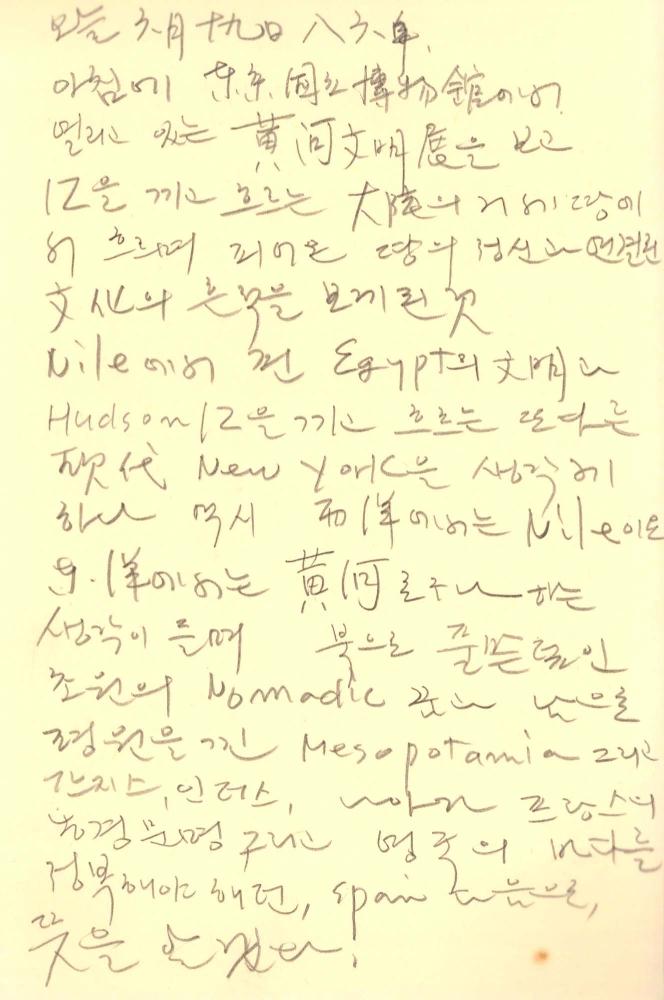 오늘 六月 十九日 八六年,
아침에 东京国立博物館에서
열리고 있는 黄河文明展을 보고
江을 끼고 흐르는 大陸의 거센 땅에
서 흐르며 피어온 땅의 정신과 연결된
文化의 흔적을 보게 된 것
Nile에서 편 Egypt의 文明과
Hudson江을 끼고 흐르는 또 다른
現代 New York을 생각케
하나 역시 西洋에서는 Nile이오
东洋에서는 黄河로구나 하는
생각이 들며 북으로
초원의 Nomadic 꿈과 남으로
평원을 낀 Mesopotamia 그리고
간지스, 인더스, 나아가 프랑스의
농경문명 그리고 영국의 바다를
정복해야 했던, Spain 다음으로,
뜻을 알겠다!